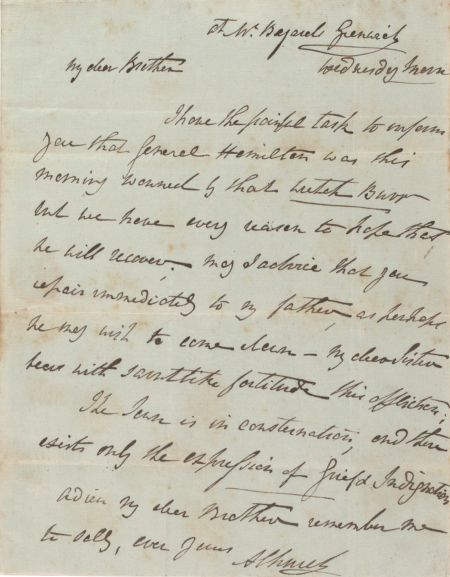 At Mr. Bayards Greenwich
Wednesday Morn
My dear Brother
I have the painful task to inform
you that General Hamilton was this
morning wounded by that wretch Burr
but we have every reason to hope that
he will recover. May I advice that you
repair immediately to my father, as perhaps
he may wish to come down – My dear Sister
bears with saintlike fortitude this affliction;
The Town is in consternation, and there
exists only the expression of Grief & Indignation
Adieu my dear Brother remember me
to Sally, ever Yours
A Church